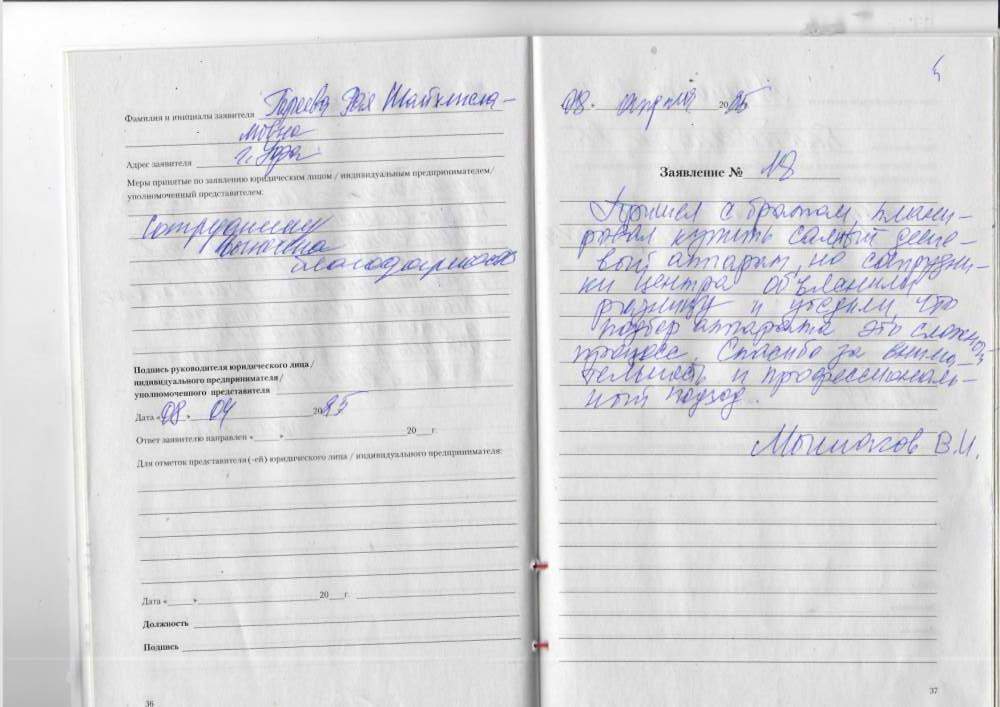 Фамилия и инициалы заявителя Гареева Рая Шайхисла-
мовна
Адрес заявителя г. Уфа
Меры принятые по заявлению юридическим лицом / индивидуальным предпринимателем/
уполномоченный представителем:
Сотрудникам
вынесена
благодарность
Подпись руководителя юридического лица /
индивидуального предпринимателя /
уполномоченного представителя
Дата «08» 04 2025
Ответ заявителю направлен «____»____ 20__г.
Для отметок представителя (-ей) юридического лица / индивидуального предпринимателя:
Дата «____»____ 20__г.
Должность
Подпись
36
08 » апреля 2025
Заявление № 18
Пришел с братом, плани-
ровал купить самый деше-
вый аппарат, но сотрудни-
ки центра объяснили
разницу и убедили, что
подбор аппарата это сложный
процесс. Спасибо за внима-
тельность и профессиональ-
ный подход.
В.И.
37